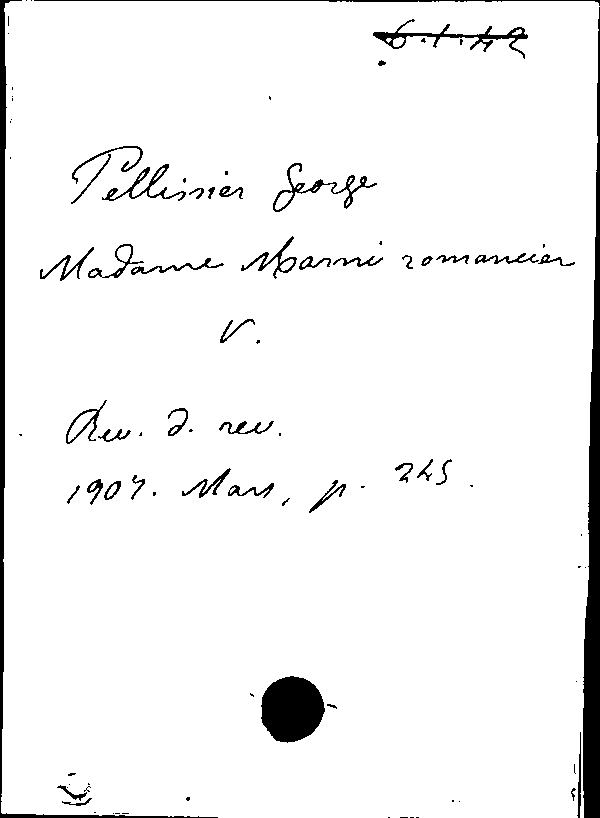 6.1.42
Pellissier George
Madame Marni romancier
V.
Rev. d. rev.
1907. Mars, p. 245.